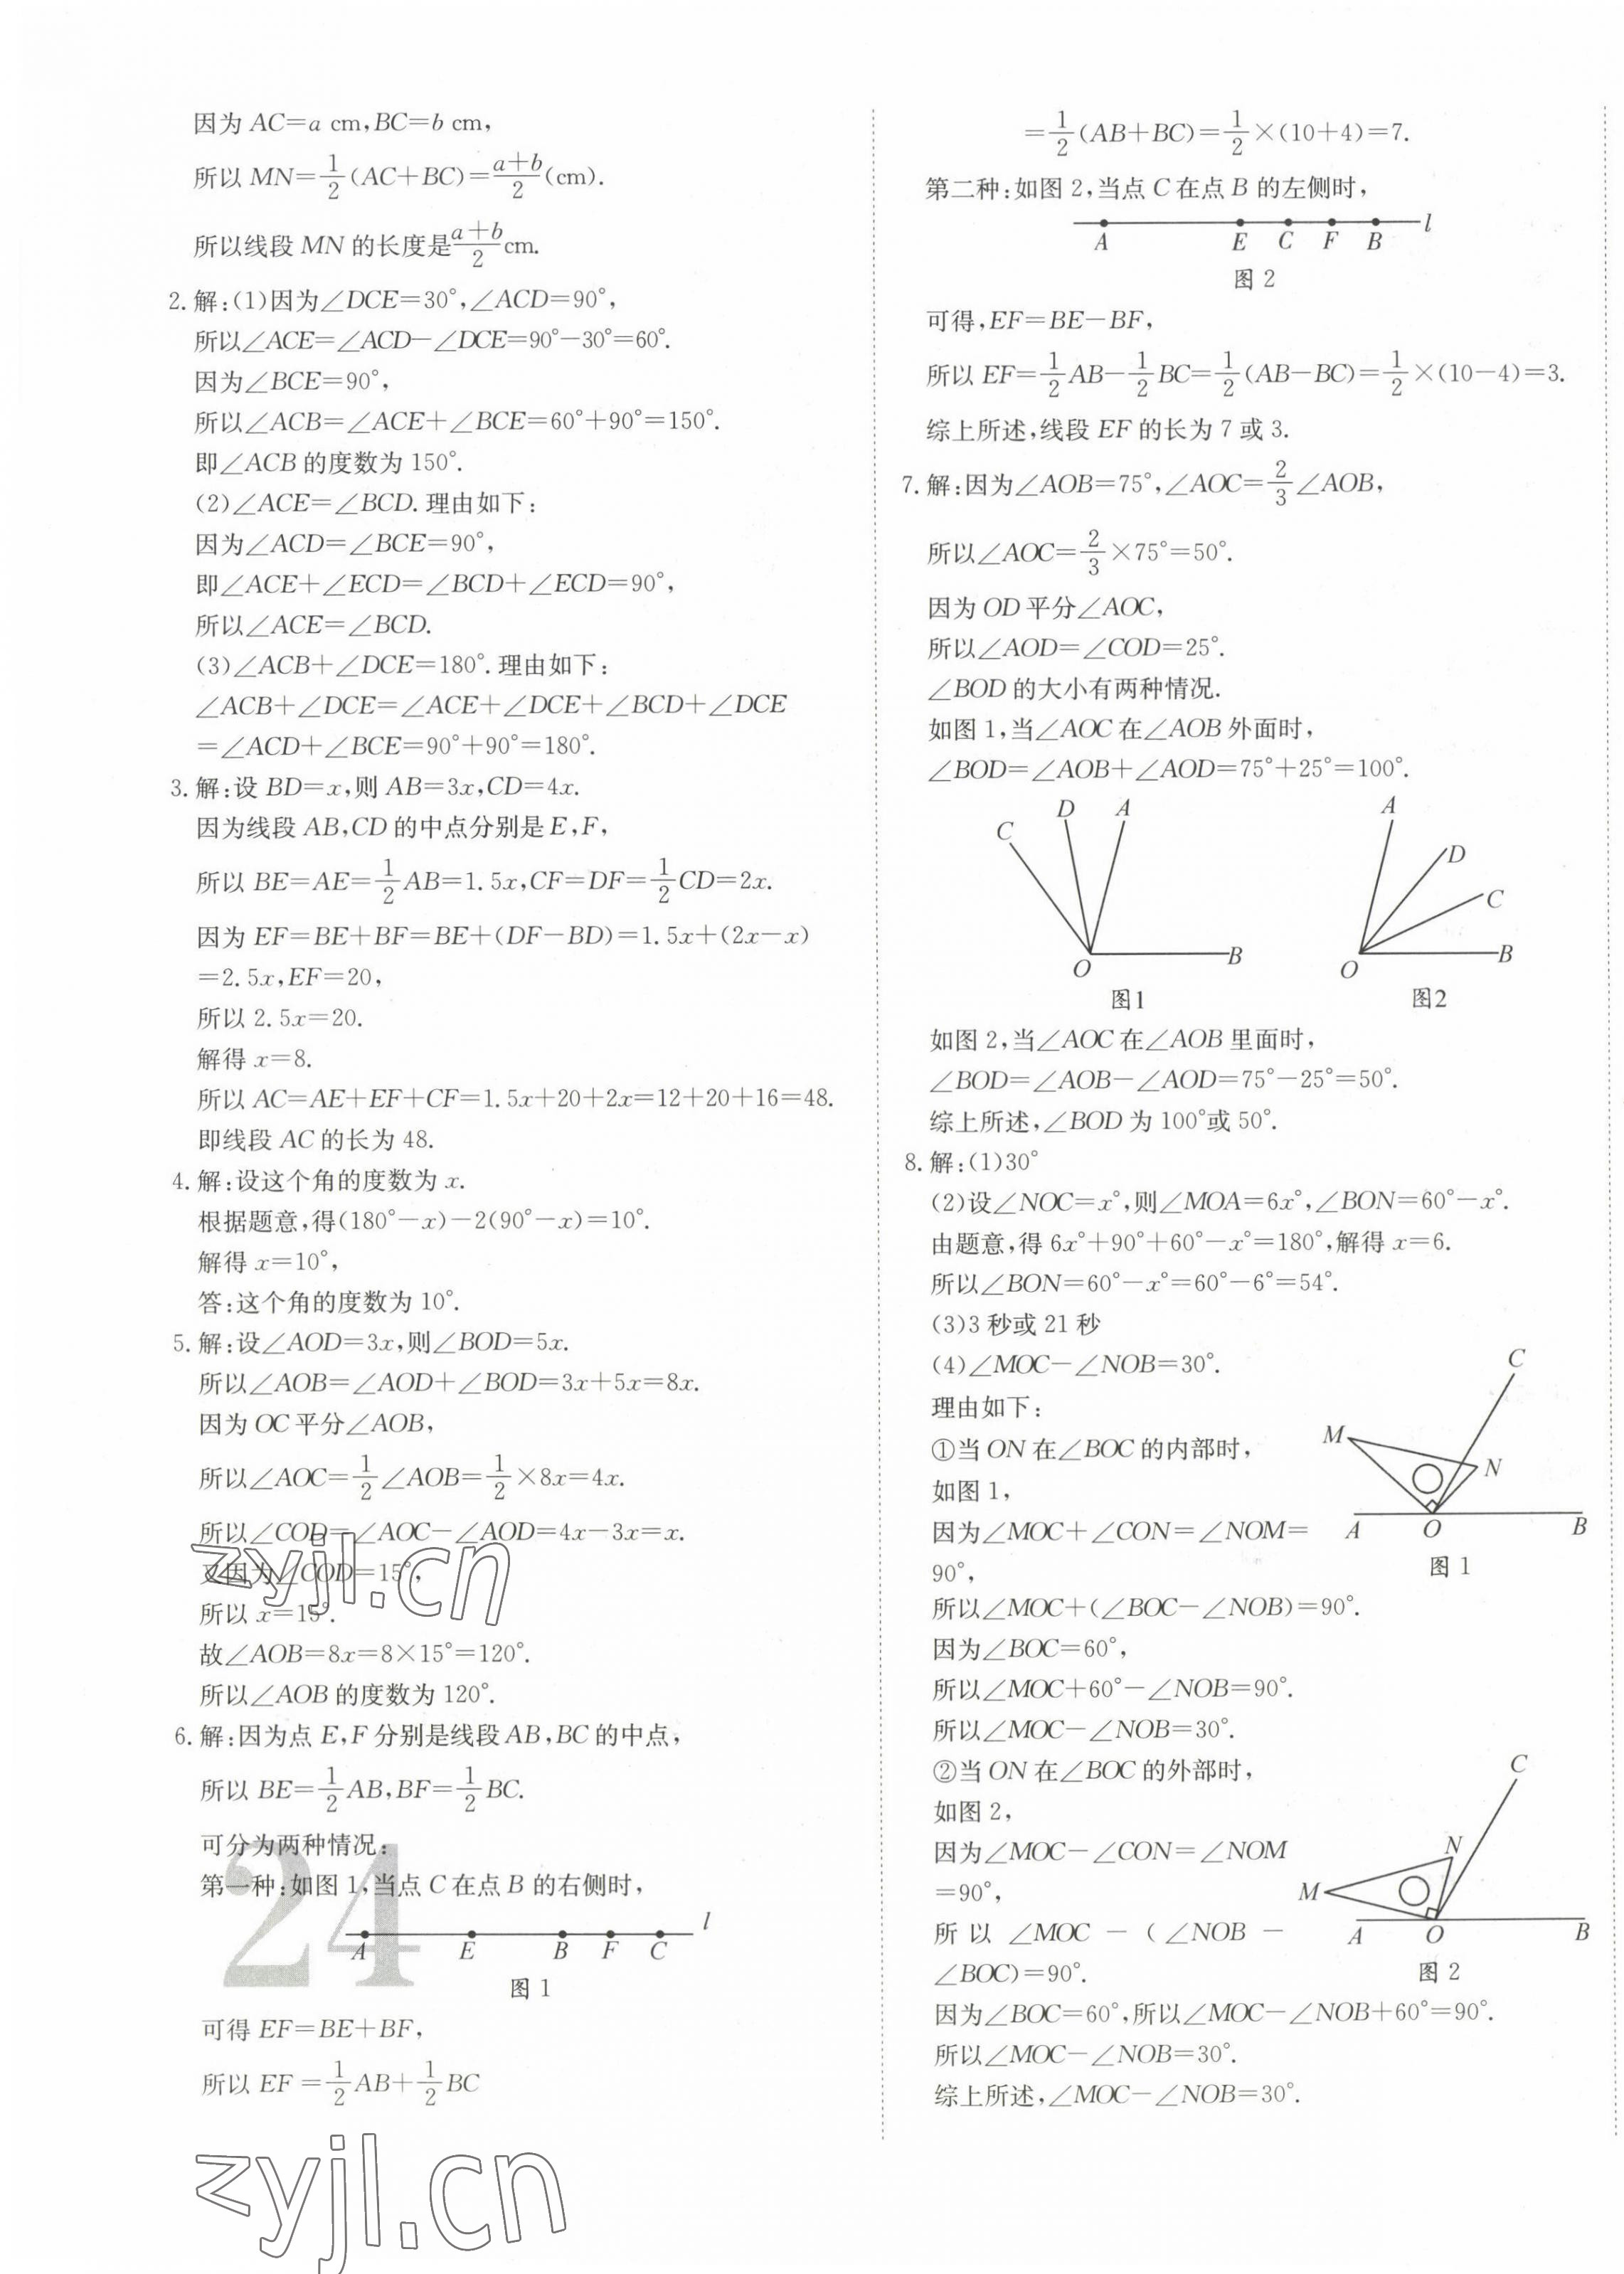 因为 AC=a cm,BC=b cm,
所以 MN=1/2(AC+BC)=(a+b)/2(cm).
所以线段 MN 的长度是(a+b)/2cm.
2.解:(1)因为∠DCE=30°,∠ACD=90°,
所以∠ACE=∠ACD-∠DCE=90°-30°=60°.
因为∠BCE=90°,
所以∠ACB=∠ACE+∠BCE=60°+90°=150°.
即∠ACB 的度数为 150°.
(2)∠ACE=∠BCD.理由如下:
因为∠ACD=∠BCE=90°,
即∠ACE+∠ECD=∠BCD+∠ECD=90°,
所以∠ACE=∠BCD.
(3)∠ACB+∠DCE=180°.理由如下:
∠ACB+∠DCE=∠ACE+∠DCE+∠BCD+∠DCE
=∠ACD+∠BCE=90°+90°=180°.
3.解:设 BD=x,则 AB=3x,CD=4x.
因为线段 AB,CD 的中点分别是 E,F,
所以 BE=AE=1/2AB=1.5x,CF=DF=1/2CD=2x.
因为 EF=BE+BF=BE+(DF-BD)=1.5x+(2x-x)
=2.5x,EF=20,
所以 2.5x=20.
解得 x=8.
所以 AC=AE+EF+CF=1.5x+20+2x=12+20+16=48.
即线段 AC 的长为 48.
4.解:设这个角的度数为 x.
根据题意,得(180°-x)-2(90°-x)=10°.
解得 x=10°,
答:这个角的度数为 10°.
5.解:设∠AOD=3x,则∠BOD=5x.
所以∠AOB=∠AOD+∠BOD=3x+5x=8x.
因为 OC 平分∠AOB,
所以∠AOC=1/2∠AOB=1/2×8x=4x.
所以∠COD=∠AOC-∠AOD=4x-3x=x.
又因为∠COD=15°,
所以 x=15°.
故∠AOB=8x=8×15°=120°.
所以∠AOB 的度数为 120°.
6.解:因为点 E,F 分别是线段 AB,BC 的中点,
所以 BE=1/2AB,BF=1/2BC.
可分为两种情况:
第一种:如图 1,当点 C 在点 B 的右侧时,
A E B F C l
图 1
可得 EF=BE+BF,
所以 EF=1/2AB+1/2BC
24
zyjl.cn
zyjl.cn
=1/2(AB+BC)=1/2×(10+4)=7.
第二种:如图 2,当点 C 在点 B 的左侧时,
A E C F B l
图 2
可得,EF=BE-BF,
所以 EF=1/2AB-1/2BC=1/2(AB-BC)=1/2×(10-4)=3.
综上所述,线段 EF 的长为 7 或 3.
7.解:因为∠AOB=75°,∠AOC=2/3∠AOB,
所以∠AOC=2/3×75°=50°.
因为 OD 平分∠AOC,
所以∠AOD=∠COD=25°.
∠BOD 的大小有两种情况.
如图 1,当∠AOC 在∠AOB 外面时,
∠BOD=∠AOB+∠AOD=75°+25°=100°.
C D A O B
图1
A D C O B
图2
如图 2,当∠AOC 在∠AOB 里面时,
∠BOD=∠AOB-∠AOD=75°-25°=50°.
综上所述,∠BOD 为 100°或 50°.
8.解:(1)30°
(2)设∠NOC=x°,则∠MOA=6x°,∠BON=60°-x°.
由题意,得 6x°+90°+60°-x°=180°,解得 x=6.
所以∠BON=60°-x°=60°-6°=54°.
(3)3 秒或 21 秒
(4)∠MOC-∠NOB=30°.
理由如下:
①当 ON 在∠BOC 的内部时,
如图 1,
因为∠MOC+∠CON=∠NOM=
90°,
C M N A O B
图 1
所以∠MOC+(∠BOC-∠NOB)=90°.
因为∠BOC=60°,
所以∠MOC+60°-∠NOB=90°.
所以∠MOC-∠NOB=30°.
②当 ON 在∠BOC 的外部时,
如图 2,
因为∠MOC-∠CON=∠NOM
=90°,
所以 ∠MOC-(∠NOB-
∠BOC)=90°.
C N M A O B
图 2
因为∠BOC=60°,所以∠MOC-∠NOB+60°=90°.
所以∠MOC-∠NOB=30°.
综上所述,∠MOC-∠NOB=30°.